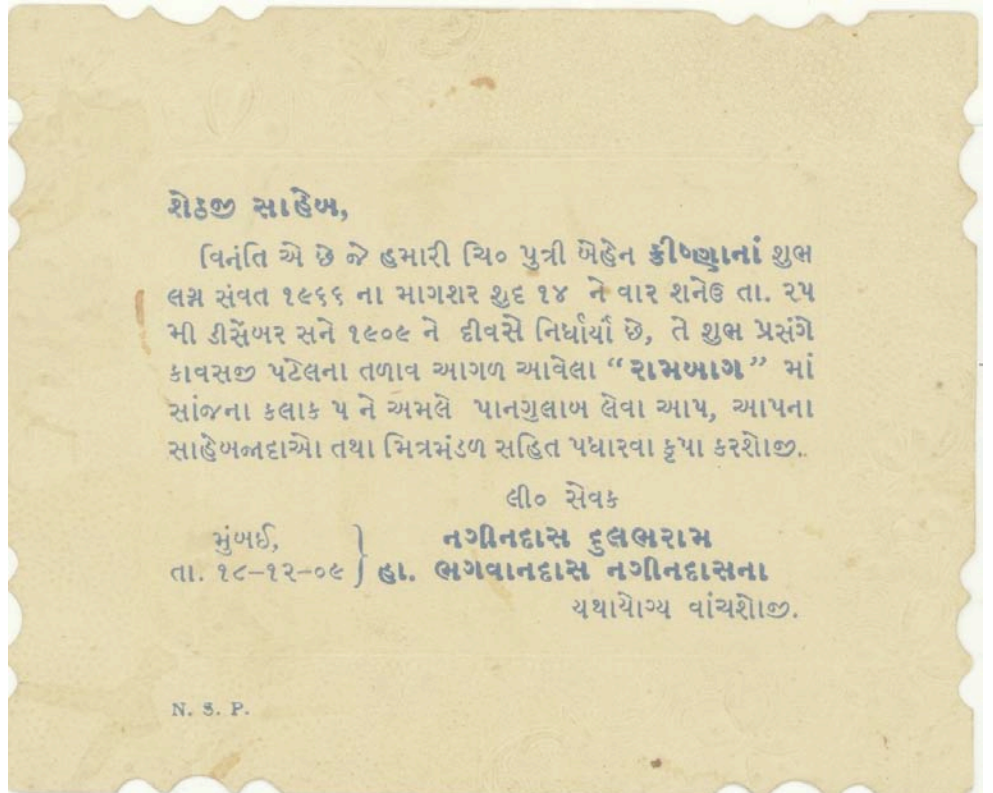 શેઠજી સાહેબ,
વિનંતિ એ છે જે હમારી ચિ૦ પુત્રી બેહેન ક્રીષ્ણાનાં શુભ
લગ્ન સંવત ૧૯૬૬ ના માગશર શુદ ૧૪ ને વાર શનેઉ તા. ૨૫
મી ડીસેંબર સને ૧૯૦૯ ને દીવસે નિર્ધાર્યાં છે, તે શુભ પ્રસંગે
કાવસજી પટેલના તળાવ આગળ આવેલા “રામબાગ” માં
સાંજના કલાક ૫ ને અમલે પાનગુલાબ લેવા આપ, આપના
સાહેબજાદાઓ તથા મિત્રમંડળ સહિત પધારવા કૃપા કરશોજી.
લી૦ સેવક
નગીનદાસ દુલભરામ
મુંબઈ,
તા. ૧૮–૧૨–૦૯ } હા. ભગવાનદાસ નગીનદાસના
યથાયોગ્ય વાંચશોજી.
N. S. P.